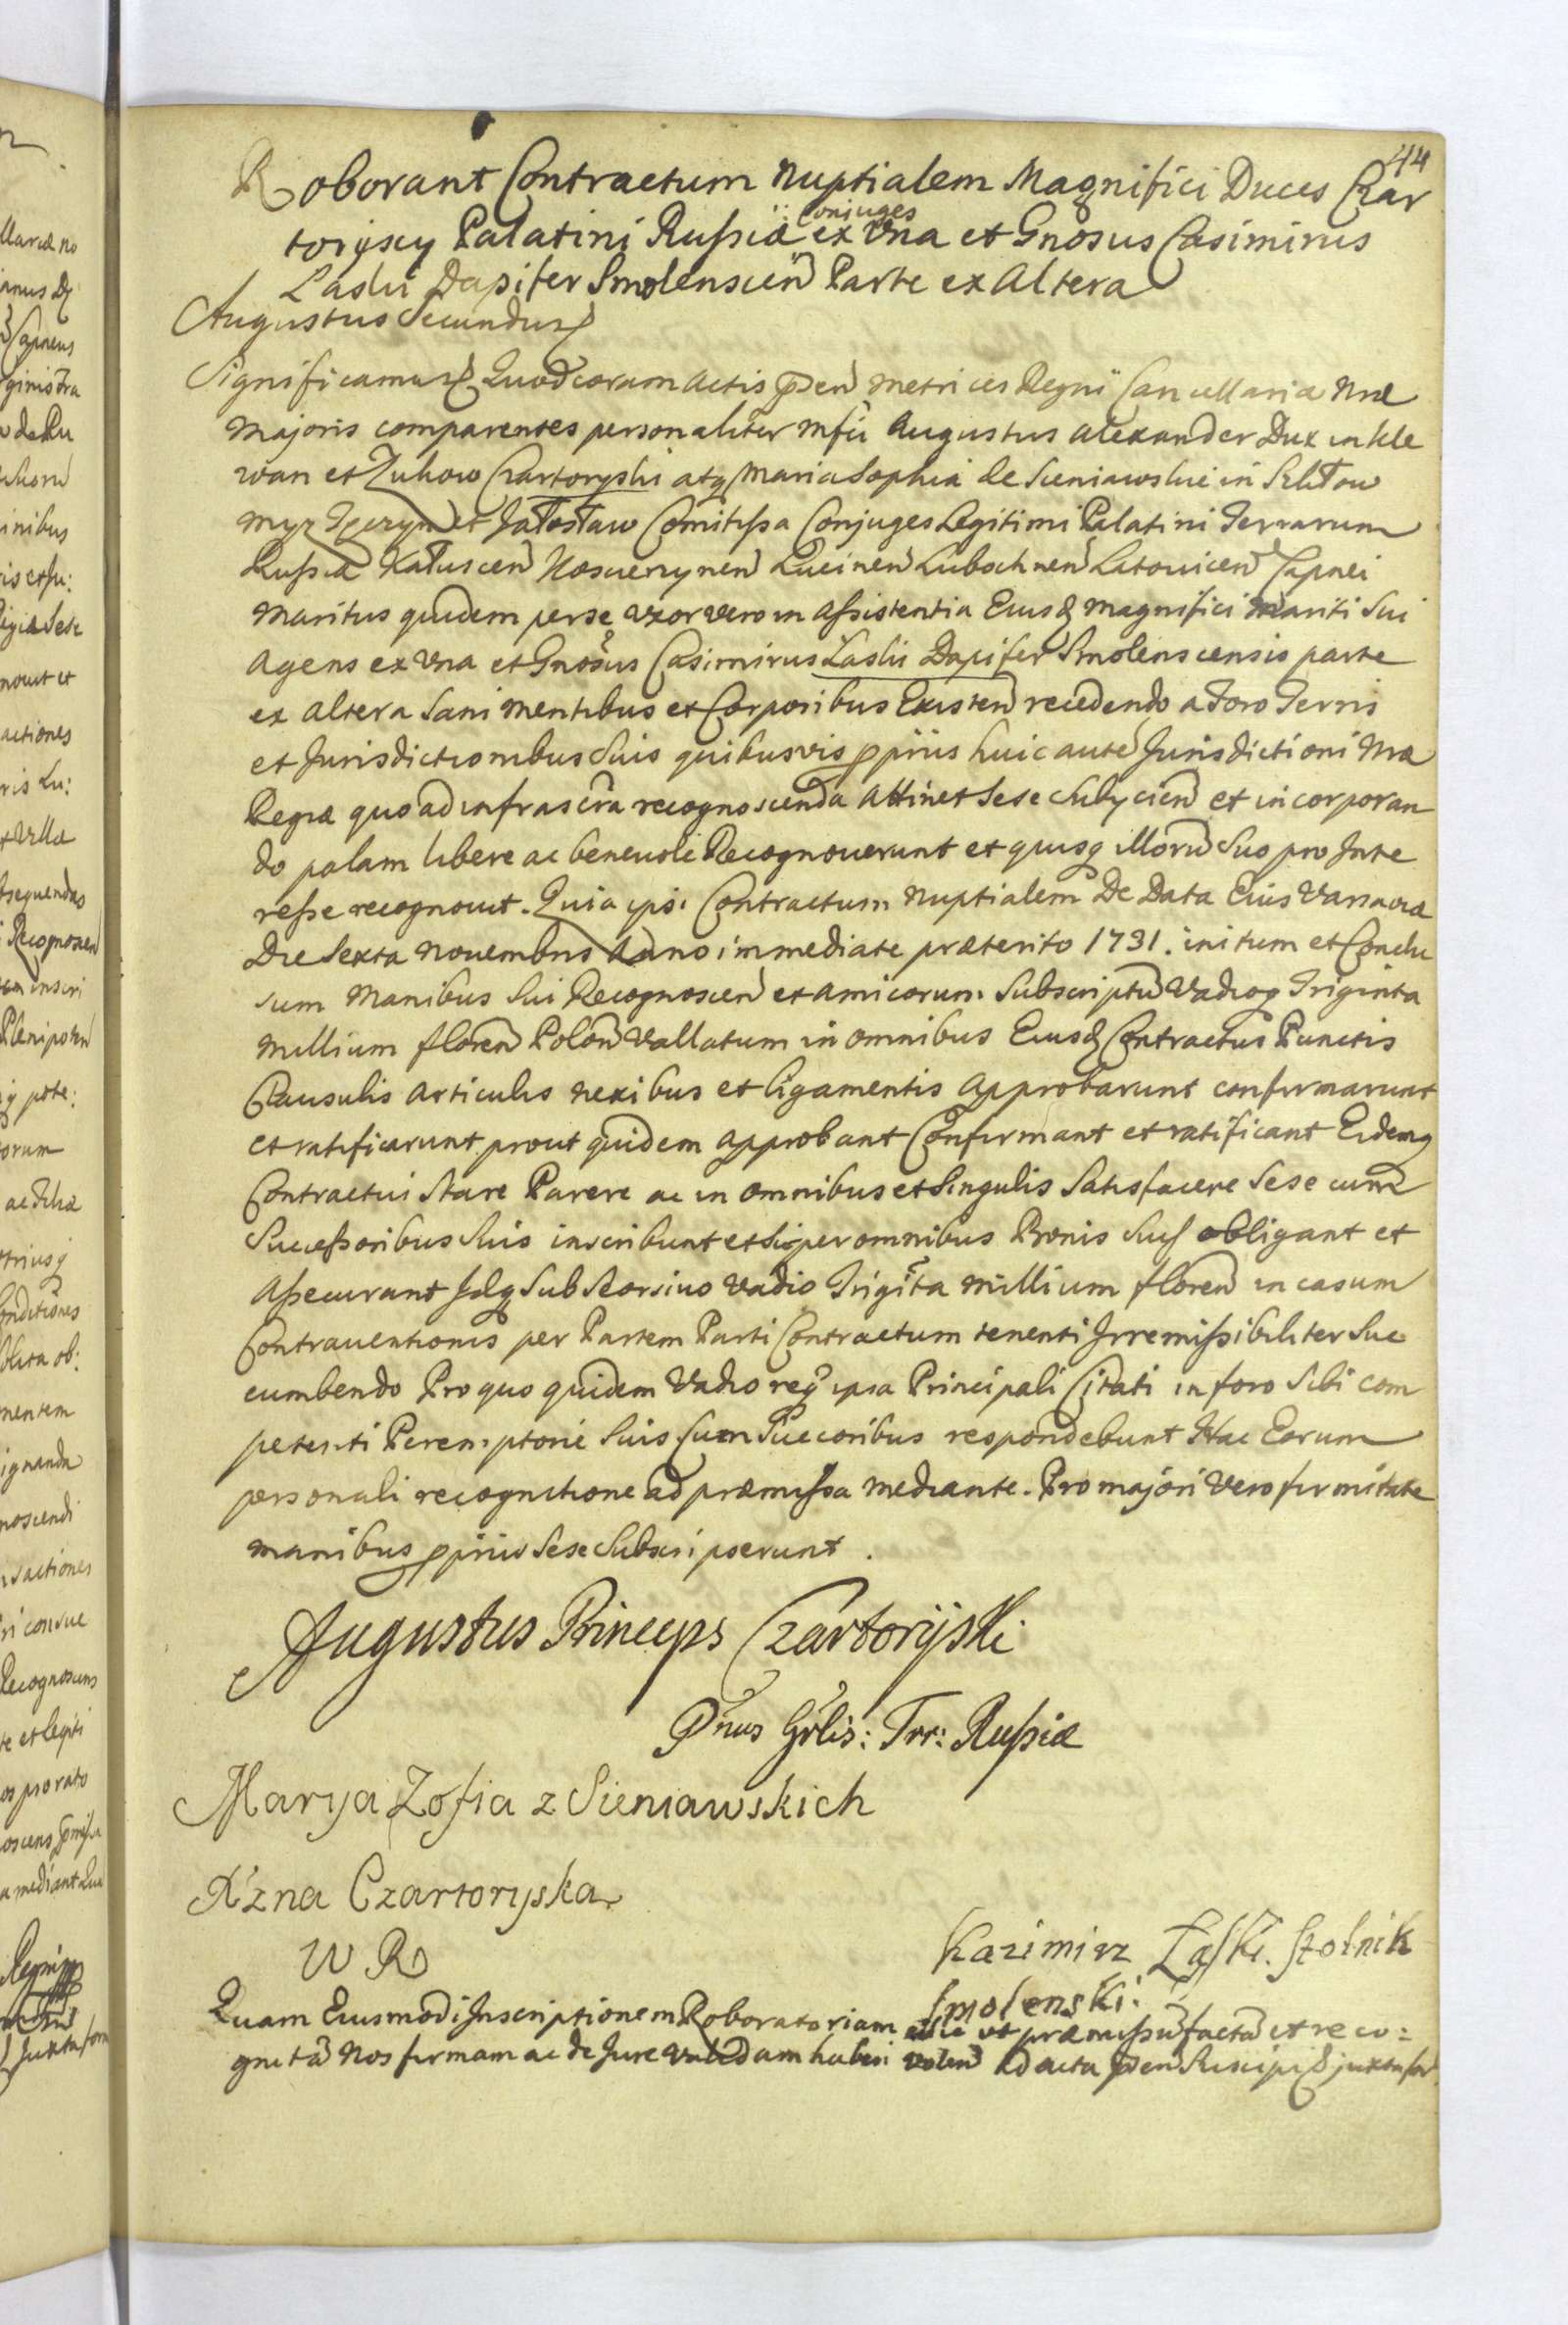 44
Roborant Contractum Nuptialem Magnifici Duces Czar
Conjuges
toryscy Palatini Russiæ ex Vna et Gnosus Casimirus
Laski Dapifer Smolenscen Parte ex Altera
Augustus Secundus
Significamus Quod coram Actis præsen Metrices Regni Cancellariæ Nræ
Majoris comparentes personaliter Mfci Augustus Alexander Dux in Kle
wan et Zukow Czartoryski atq Maria Sophia de Sieniawskie in Szkłow
Mysz et Jarosław Comitissa Conjuges Legitimi Palatini Terrarum
Russiæ Kałuscen Lucinen Lubochnen Latovicen Capnei
Maritus quidem per se Vxor vero in Assistentia Eiusd Magnifici Mariti Sui
Agens ex Vna et Gnosus Casimirus Laski Dapifer Smolenscensis parte
ex Altera Sani Mentibus et Corporibus Existen recedendo a Foro Terris
et Jurisdictionibus Suis quibusvis ppriis huic autē Jurisdictioni Nræ
Regiæ quo ad infrascrā recognoscenda Attinet Sese Subycien et incorporan
do palam libere ac benevole Recognoverunt et quisq illorū Suo pro Inte
resse recognovit. Quia ipsi Contractum Nuptialem De Data Eius Varsaviæ
Die Sexta Novembris Anno immediate præterito 1731. initum et Conclu
sum Manibus Sui Recognoscen et Amicorum Subscriptū Vadioq Triginta
Millium floren Polon Vallatum in omnibus Eiusd Contractus Punctis
Clausulis Articulis nexibus et ligamentis Approbarunt confirmarunt
et ratificarunt prout quidem Approbant Confirmant et ratificant Eidemq
Contractui Stare Parere ac in omnibus et Singulis Satisfacere Sese cum
Successoribus Suis inscribunt et Super omnibus Bonis Suis obligant et
Assecurant Idq Sub Seorsivo Vadio Trigita Millium floren in casum
Contraventionis per Partem Parti Contractum tenenti Irremissibiliter Suc
cumbendo Pro quo quidem Vadio ipsa Principali Citati in foro Sibi com
petenti Peremptorie Suis Cum Succoribus respondebunt Hac Eorum
personali recognitione ad præmissa Mediante. Pro majori Vero firmitate
manibus ppriis Sese Subscripserunt.
Augustus Princeps Czartoryski
Pnus Grlis: Trr: Russiæ
Marya Zofia z Sieniawskich
Xżna Czartoryska
W R
Kazimirz Łaski. Stolnik
Smolenski.
Quam Eiusmodi Inscriptionem Roboratoriam sic ut præmissū factā et reco=
gnitā Nos firmam ac de Jure Validam haberi Volen Ad Acta præsen Suscipi juxta for